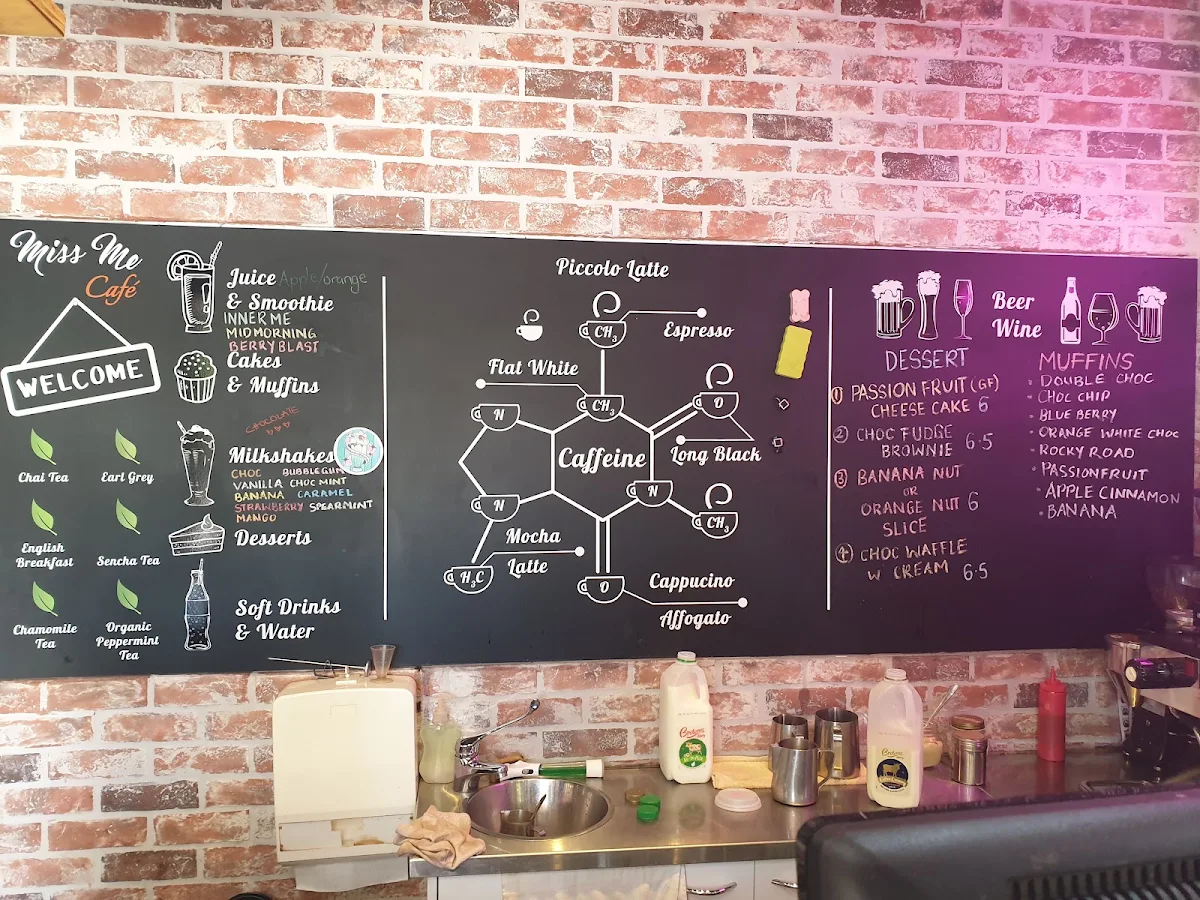 Miss Me
Café
WELCOME
Chai Tea
Earl Grey
English
Breakfast
Sencha Tea
Chamomile
Tea
Organic
Peppermint
Tea
Juice Apple/orange
& Smoothie
INNER ME
MIDMORNING
BERRY BLAST
Cakes
& Muffins
CHOCOLATE
Milkshakes
CHOC BUBBLEGUM
VANILLA CHOC MINT
BANANA CARAMEL
STRAWBERRY SPEARMINT
MANGO
Desserts
Soft Drinks
& Water
Piccolo Latte
CH3
Espresso
Flat White
N
CH3
O
Caffeine
Long Black
N
N
CH3
Mocha
Latte
H3C
O
Cappucino
Affogato
Beer
Wine
DESSERT
① PASSION FRUIT (GF)
CHEESE CAKE 6
② CHOC FUDGE
BROWNIE 6.5
③ BANANA NUT
OR
ORANGE NUT 6
SLICE
④ CHOC WAFFLE
W CREAM 6.5
MUFFINS
• DOUBLE CHOC
• CHOC CHIP
• BLUE BERRY
• ORANGE WHITE CHOC
• ROCKY ROAD
• PASSIONFRUIT
• APPLE CINNAMON
• BANANA